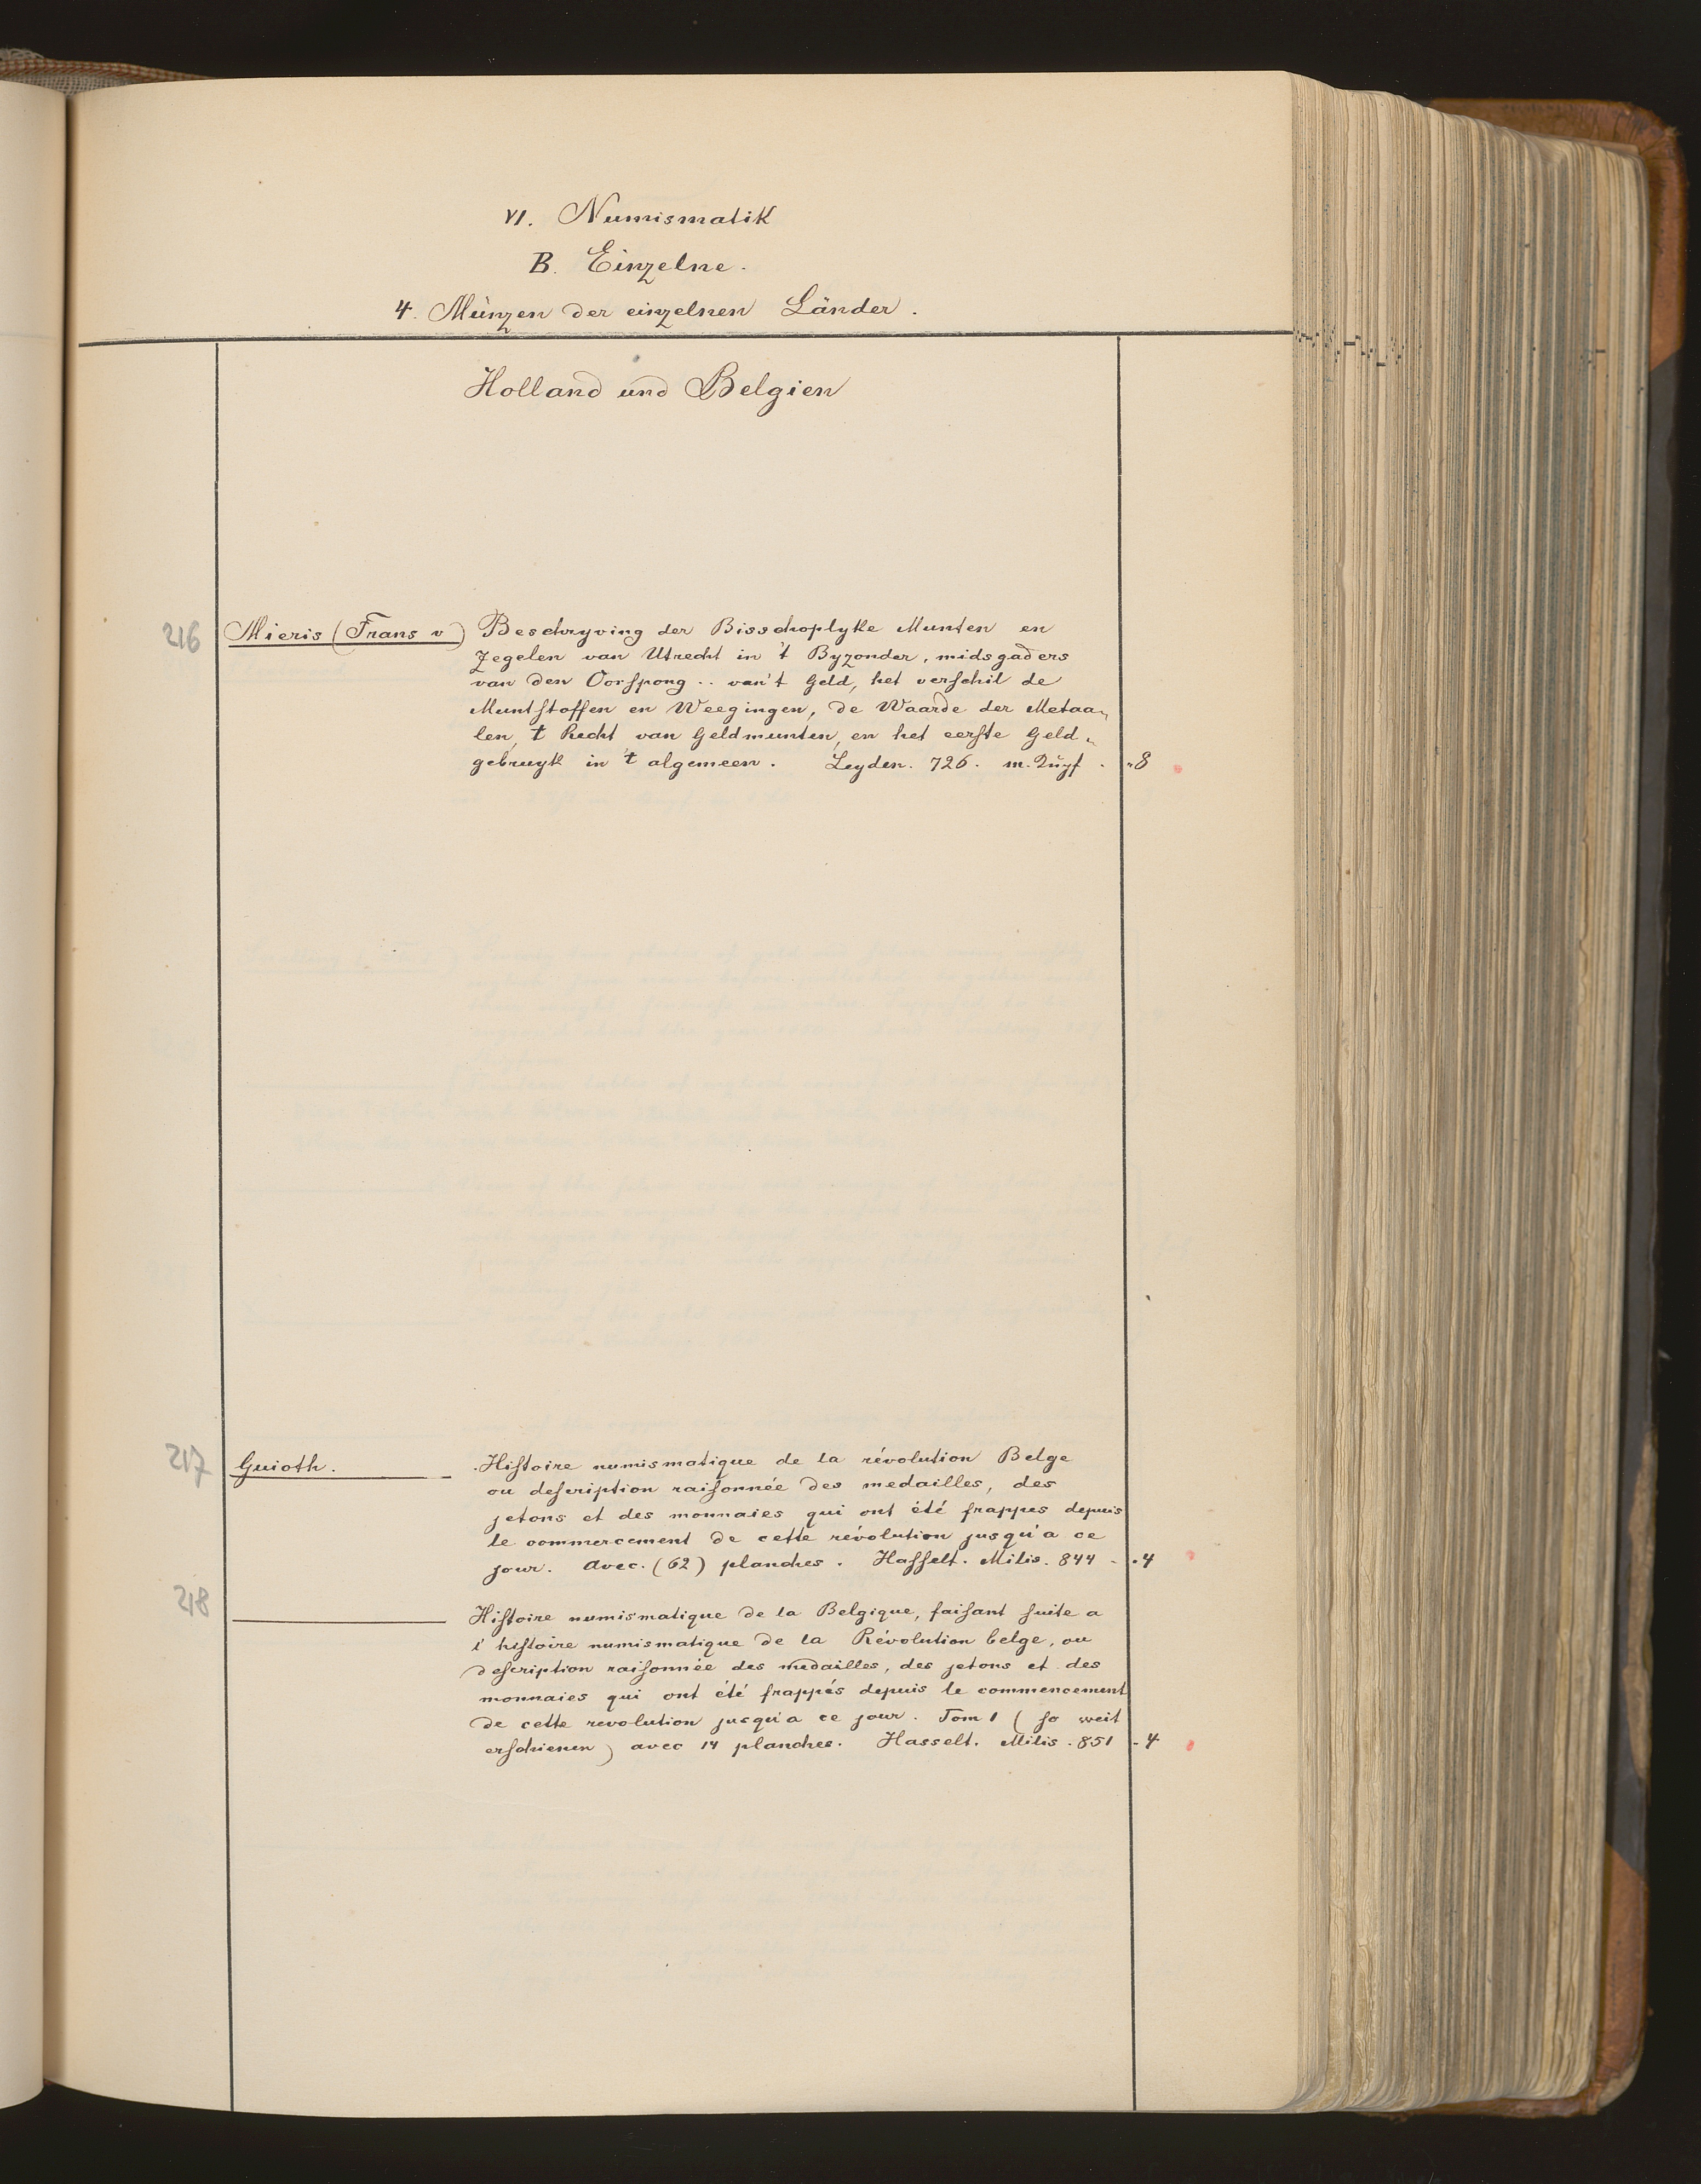 VI. Numismatik
B. Einzelne.
4. Münzen der einzelnen Länder.
Holland und Belgien
216 Mieris (Frans v) Beschryving der Bisschoplyke Munten en
Zegelen van Utrecht in 't Byzonder, midsgaders
van den Oorspong .. van't Geld, het verschil de
Muntstoffen en Weegingen, de Waarde der Metaa-
len, t Recht van Geldmunten, en het eerste Geld-
gebruyk in 't algemeen. Leyden. 726. m. Kupf. - 8
217 Guioth. Histoire numismatique de la révolution Belge
ou description raisonnée des medailles, des
jetons et des monnaies qui ont été frappes depuis
le commercement de cette révolution jusqu'a ce
jour. Avec. (62) planches. Hasselt. Milis. 844 - . 4
218 Histoire numismatique de la Belgique, faisant suite a
l'histoire numismatique de la Révolution belge, ou
description raisonnée des medailles, des jetons et des
monnaies qui ont été frappés depuis le commencement
de cette revolution jusqu'a ce jour. Tom 1 (so weit
erschienen) avec 14 planches. Hasselt. Milis. 851 - 4